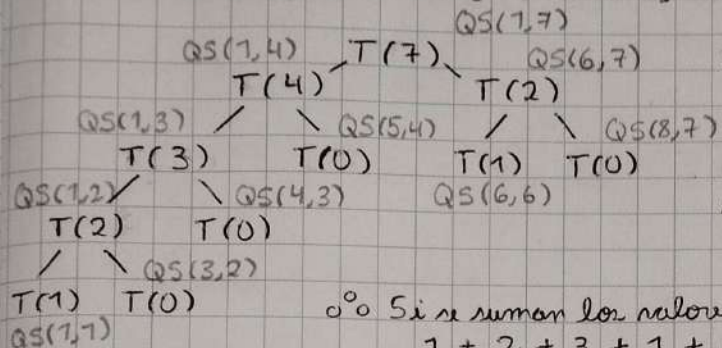 QS(1,7)
QS(1,4) T(7) QS(6,7)
T(4) T(2)
QS(1,3) QS(5,4) QS(8,7)
T(3) T(0) T(1) T(0)
QS(1,2) QS(4,3) QS(6,6)
T(2) T(0)
QS(3,2)
T(1) T(0) Si se suman los valore
QS(1,1) 1 + 2 + 3 + 1 +